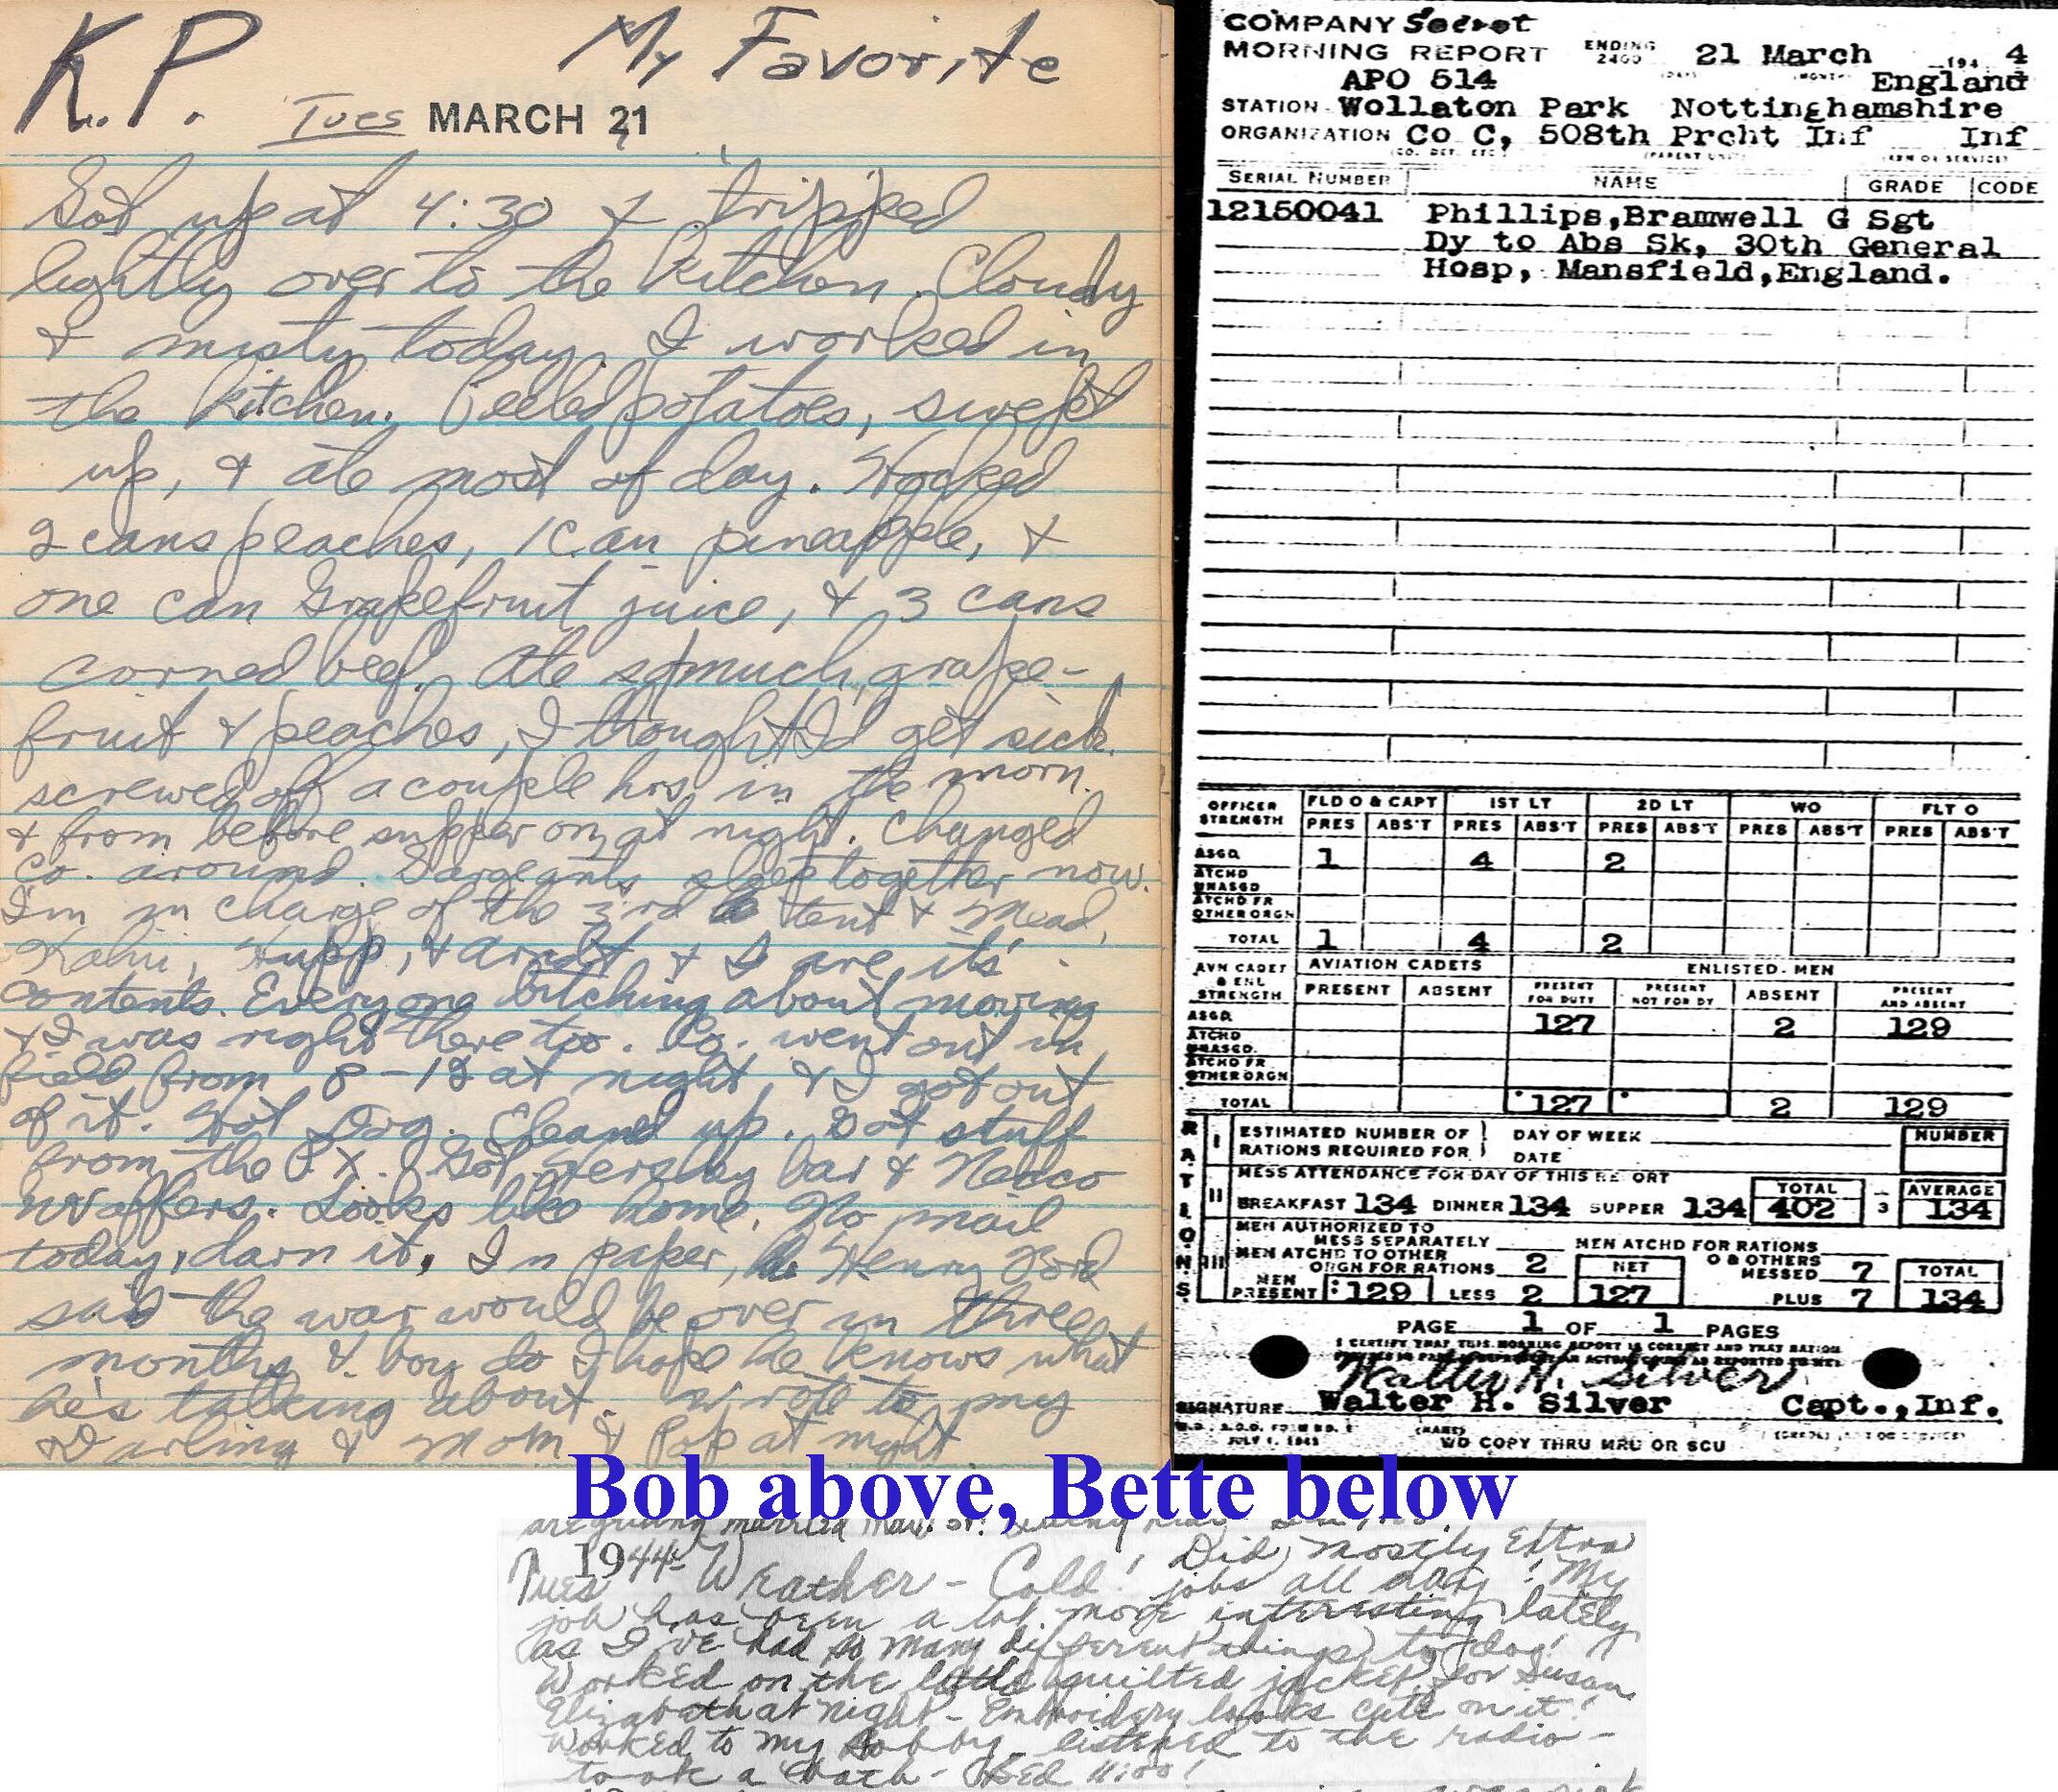 K.P. My Favorite
Tues MARCH 21
Got up at 4:30 & tripped
lightly over to the kitchen. Cloudy
& misty today. I worked in
the kitchen. Peeled potatoes, swept
up, & ate most of day. Hocked
2 cans peaches, 1 can pineapple, &
one can Grapefruit juice, & 3 cans
corned beef. Ate so much grape-
fruit & peaches, I thought I'd get sick.
screwed off a couple hrs in the morn.
& from before supper on at night. Changed
Co. around. Sargeants sleep together now.
I'm in charge of the 3rd tent & Mead,
Kalin, Hupp, & Arndt & I are it's
contents. Everyone bitching about moving
& I was right there too. Co. went out in
field from 8-12 at night & I got out
of it. Hot Dog. Cleaned up. Got stuff
from the P.X. Got Hershey bar & Necco
Waffers. Looks like home. No mail
today, darn it. In paper, Henry Ford
said the war would be over in three
months & boy do I hope he knows what
he's talking about. Wrote to my
Darling & Mom & Pop at night.
COMPANY Secret
MORNING REPORT ENDING 2400 21 March 194 4
APO 514 England
STATION Wollaton Park Nottinghamshire
ORGANIZATION Co C, 508th Prcht Inf Inf
SERIAL NUMBER NAME GRADE CODE
12150041 Phillips,Bramwell G Sgt
Dy to Abs Sk, 30th General
Hosp, Mansfield,England.
OFFICER STRENGTH FLD O & CAPT 1ST LT 2D LT WO FLT O
PRES ABS'T PRES ABS'T PRES ABS'T PRES ABS'T PRES ABS'T
ASGD 1 4 2
ATCHD UNASGD
ATCHD FR OTHER ORGN
TOTAL 1 4 2
AVN CADET & ENL STRENGTH AVIATION CADETS ENLISTED MEN
PRESENT ABSENT PRESENT FOR DUTY PRESENT NOT FOR DY ABSENT PRESENT AND ABSENT
ASGD 127 2 129
ATCHD UNASGD
ATCHD FR OTHER ORGN
TOTAL 127 2 129
RATIONS
I ESTIMATED NUMBER OF RATIONS REQUIRED FOR DAY OF WEEK DATE NUMBER
II MESS ATTENDANCE FOR DAY OF THIS REPORT
BREAKFAST 134 DINNER 134 SUPPER 134 TOTAL 402 ÷ 3 AVERAGE 134
III MEN AUTHORIZED TO MESS SEPARATELY MEN ATCHD FOR RATIONS
MEN ATCHD TO OTHER ORGN FOR RATIONS 2 NET O & OTHERS MESSED 7 TOTAL
MEN PRESENT 129 LESS 2 127 PLUS 7 134
PAGE 1 OF 1 PAGES
I CERTIFY THAT THIS MORNING REPORT IS CORRECT AND THAT RATION
Walter H. Silver
SIGNATURE Walter H. Silver Capt.,Inf.
JULY 1, 1943 WD COPY THRU MRU OR SCU
Bob above, Bette below
are getting married
Tues 1944 Weather - Cold! Did mostly Extra
jobs all day! My
job has been a lot more interesting lately
as I've had so many different things to do!
Worked on the little quilted jacket for Susan
Elizabeth at night - Embroidery looks cute on it!
Worked to my hobby - listened to the radio -
took a bath - Bed 11:00!